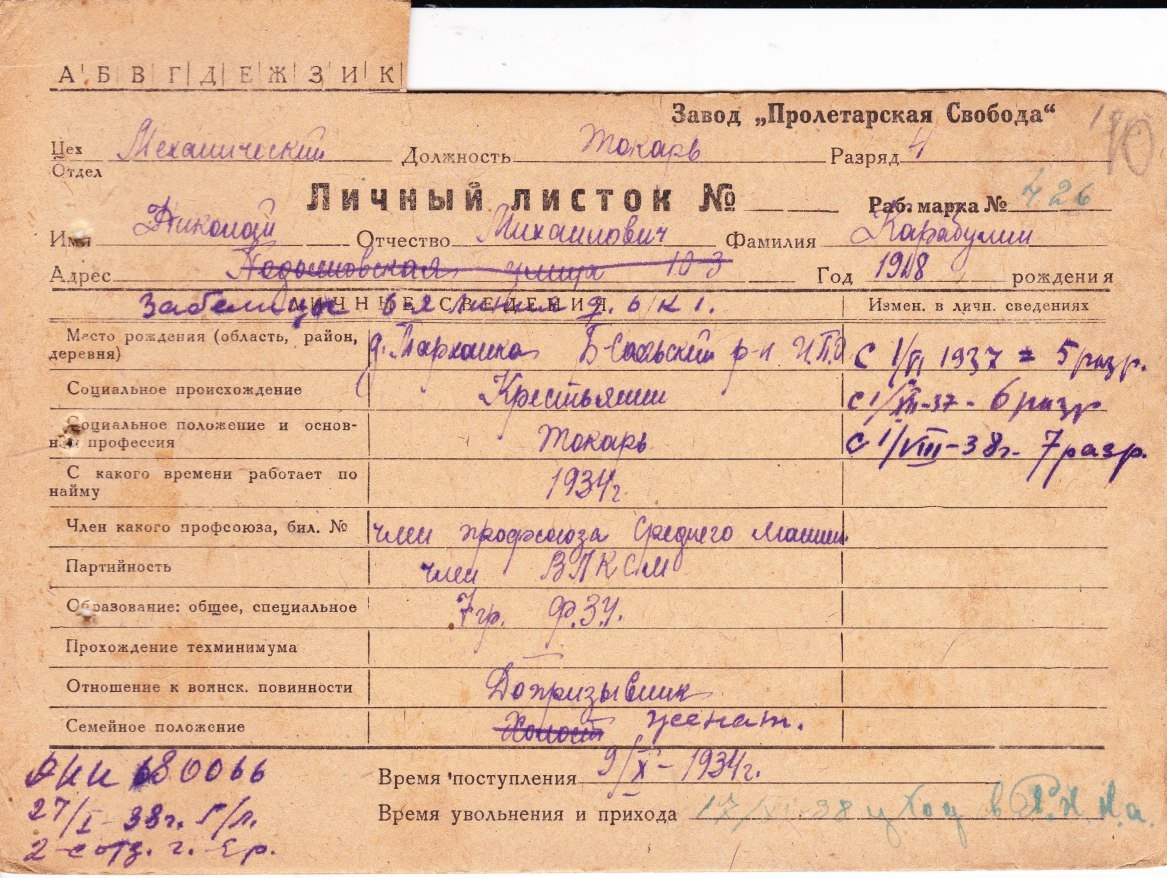 А Б В Г Д Е Ж З И К
Завод „Пролетарская Свобода“
Цех Механический Должность Токарь Разряд 4
Отдел
Личный листок №
Раб. марка № 726
Имя Николай Отчество Михаилович Фамилия Карабулин
Адрес улица 10-3 Год 1908 рождения
ЛИЧНЫЕ СВЕДЕНИЯ Измен. в личн. сведениях
6-я линия д.
Место рождения (область, район, деревня) д. р-н И.П.О С 1/II 1937 = 5 разр.
Социальное происхождение Крестьянин с 1/III-37- 6 разр
Социальное положение и основная профессия Токарь с 1/VIII-38г. 7 разр.
С какого времени работает по найму 1934г.
Член какого профсоюза, бил. № член профсоюза Среднего машин.
Партийность член ВЛКСМ
Образование: общее, специальное 7 гр. Ф.З.У.
Прохождение техминимума
Отношение к воинск. повинности Допризывник
Семейное положение Холост женат.
Время поступления 9/X-1934г.
Время увольнения и прихода 17/XI-38 уход в Р.К.К.а.
680066
27/I-38г.
2